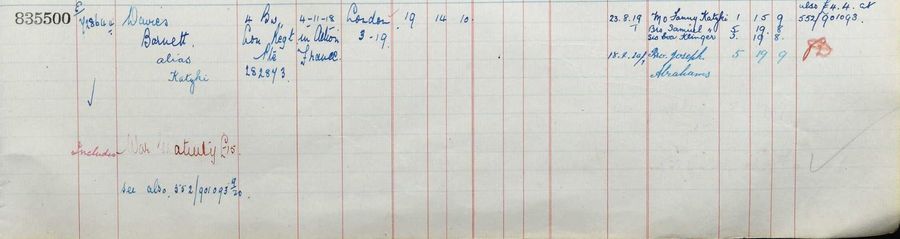 835500
E/728644 Davies 4 Bn 4-11-18 London 19 14 10 23.8.19 Mo Fanny Katzki 1 15 9 also £4.4. at
Barnett Lon Regt in Action 3-19. Bro. Samuel " 5 19 8 552/901093.
alias Pte France Sis Eva Klinger 5 19 8
Katzki 282873 Bro. Joseph 5 19 9
Abrahams
Includes War Gratuity £15.
see also, 552/901093